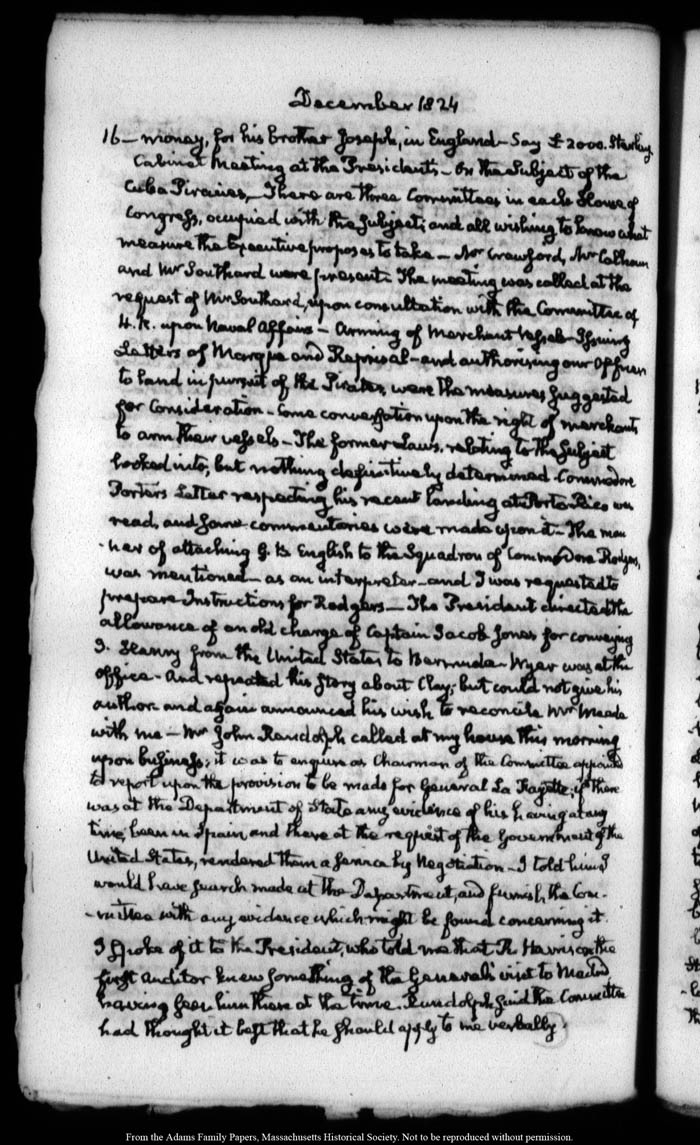 December 1824
16 – money, for his brother Joseph, in England – Say £2000. Sterling
Cabinet Meeting at the Presidents – On the Subject of the
Cuba Piracies – There are three Committees in each House of
Congress, occupied with the subject; and all wishing to know what
measure the Executive proposes to take – Mr Crawford, Mr Calhoun
and Mr Southard were present. The meeting was called at the
request of Mr Southard, upon consultation with the Committee of
H. R. upon Naval Affairs – Arming of Merchant Vessels – Issuing
Letters of Marque and Reprisal – and authorising our Officers
to land in pursuit of the Pirates, were the measures suggested
for consideration – Some conversation upon the right of merchants
to arm their vessels – The former Laws, relating to the subject
looked into; but nothing definitively determined. Commodore
Porter's Letter respecting his recent landing at Porto Rico was
read, and some commentaries were made upon it – The man
-ner of attaching G. B. English to the Squadron of Commodore Rodgers,
was mentioned – as an interpreter – and I was requested to
prepare Instructions for Rodgers – The President directed the
allowance of an old charge of Captain Jacob Jones for conveying
J. from the United States to Bermuda – Wyer was at the
office – And repeated his story about Clay; but could not give his
author and again announced his wish to reconcile Mr Meade
with me – Mr John Randolph called at my house this morning
upon business; it was to enquire as Chairman of the Committee appointed
to report upon the provision to be made for General La Fayette; if there
was at the Department of State any evidence of his having at any
time, been in Spain, and there at the request of the Government of the
United States, rendered them a service by Negotiation – I told him I
would have search made at the Department, and furnish the Com-
-mittee with any evidence which might be found concerning it.
I spoke of it to the President, who told me that R Harrison the
first Auditor knew something of the General's visit to Madrid,
having seen him there at the time. Randolph said the Committee
had thought it best that he should apply to me verbally.
From the Adams Family Papers, Massachusetts Historical Society. Not to be reproduced without permission.